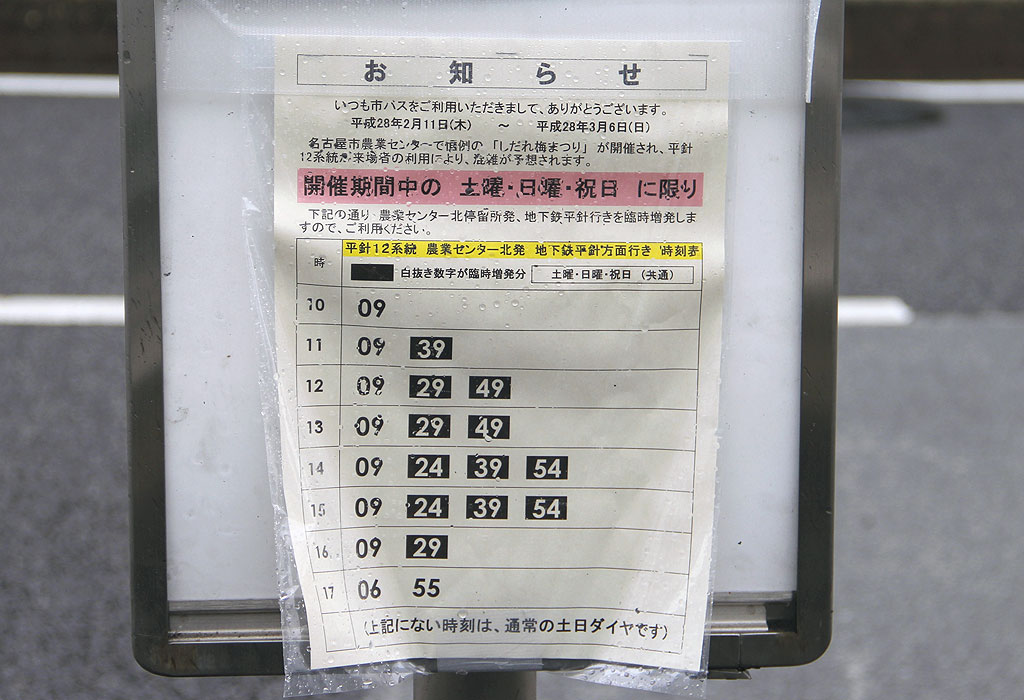 お知らせ
いつも市バスをご利用いただきまして、ありがとうございます。
平成28年2月11日(木) ～ 平成28年3月6日(日)
名古屋市農業センターで恒例の「しだれ梅まつり」が開催され、平針
12系統が来場者の利用により、混雑が予想されます。
開催期間中の 土曜・日曜・祝日 に限り
下記の通り 農業センター北停留所発、地下鉄平針行きを臨時増発しま
すので、ご利用ください。
平針12系統 農業センター北発 地下鉄平針方面行き 時刻表
時 白抜き数字が臨時増発分 土曜・日曜・祝日 (共通)
10 09
11 09 39
12 09 29 49
13 09 29 49
14 09 24 39 54
15 09 24 39 54
16 09 29
17 06 55
(上記にない時刻は、通常の土日ダイヤです)